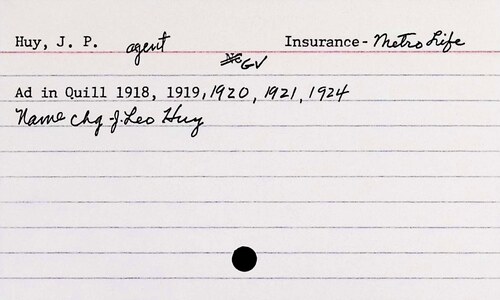 Huy, J. P. agent Insurance - Metro Life
GV
Ad in Quill 1918, 1919, 1920, 1921, 1924
Name chg - J. Leo Huy